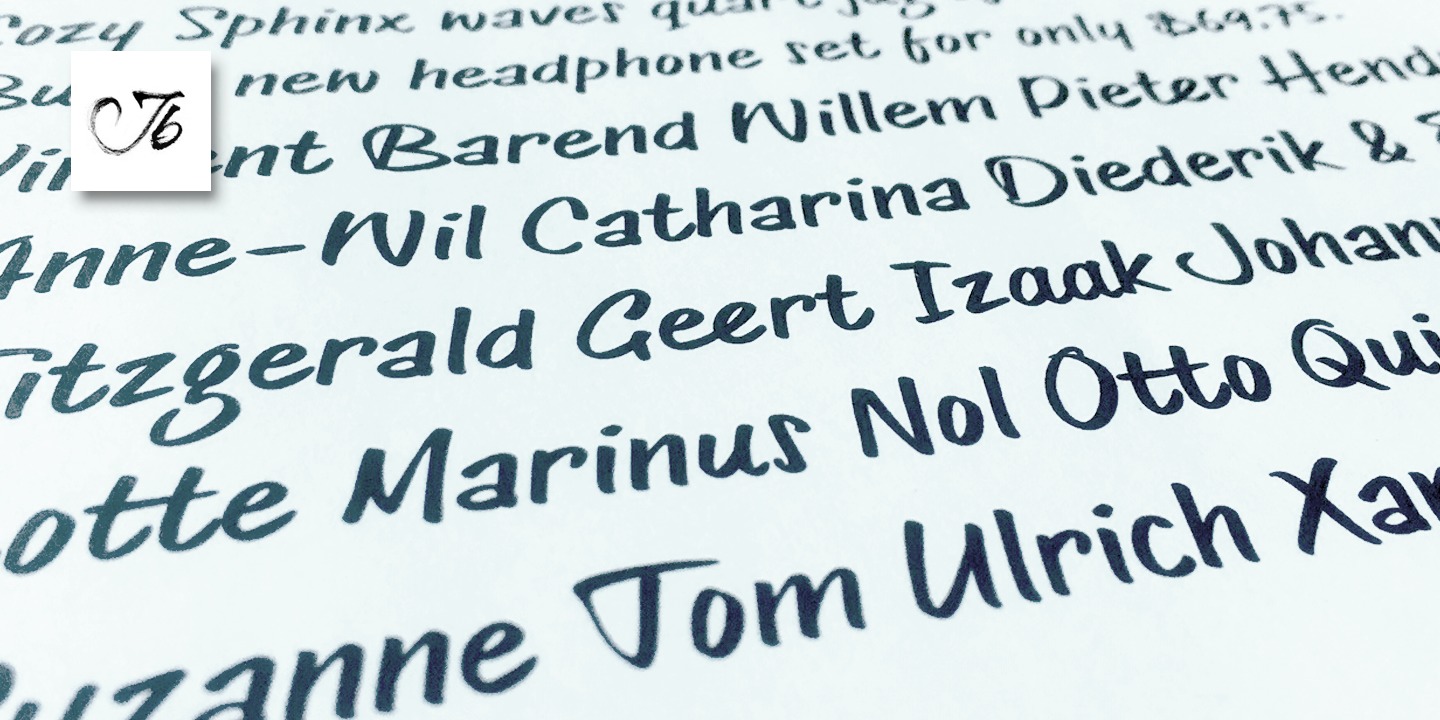 Cozy Sphinx waves quart jug
new headphone set for only $69.75.
Barend Willem Pieter
Anne-Wil Catharina Diederik &
Fitzgerald Geert Izaak
Marinus Nol Otto
Suzanne Tom Ulrich
Jb